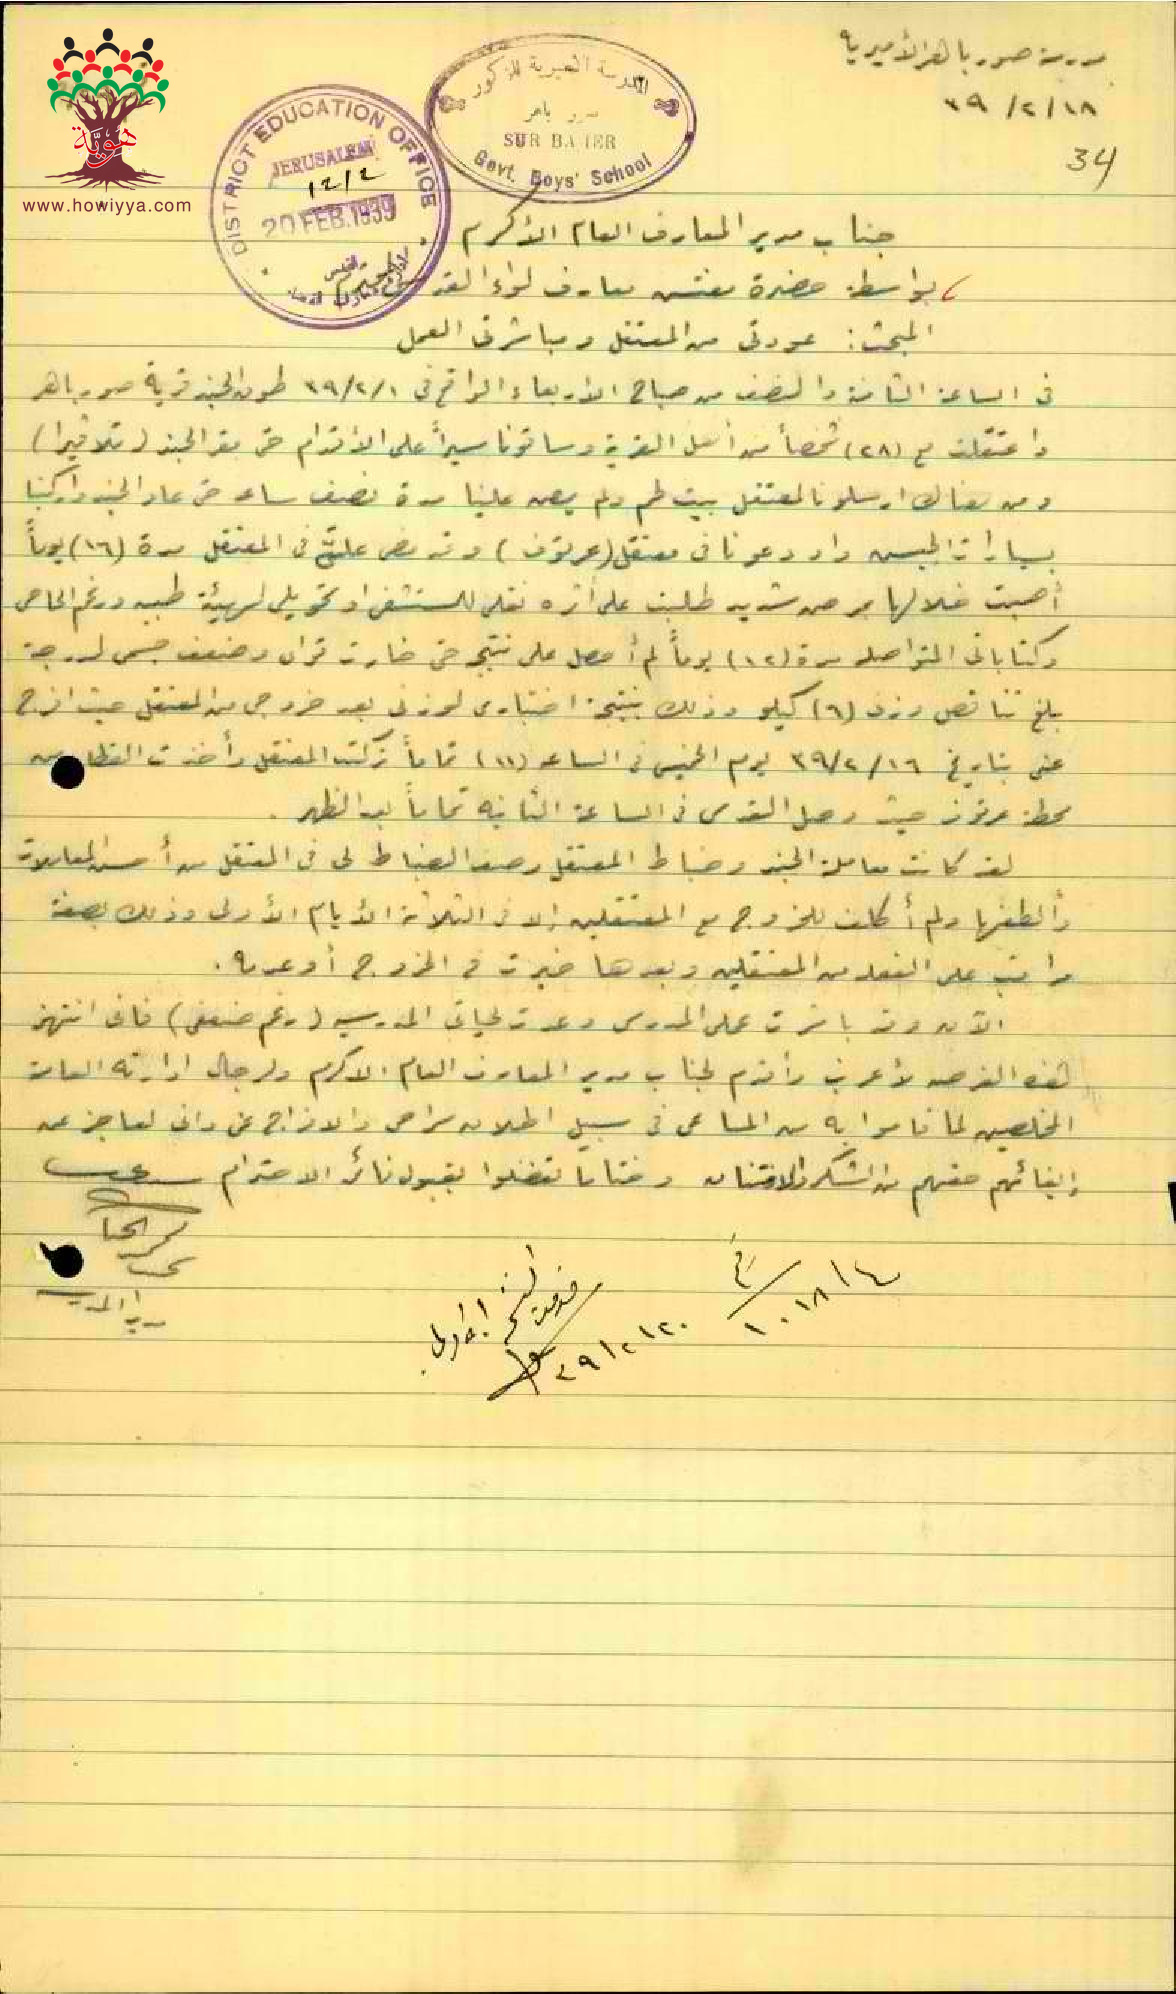 هويّة
www.howiyya.com
مدرسة صور باهر الأميرية
٣٩/٢/١٨
34
المدرسة الاميرية للذكور
صور باهر
SUR BAHER
Govt. Boys' School
DISTRICT EDUCATION OFFICE
JERUSALEM
١٢/٢
20 FEB. 1939
جناب مدير المعارف العام الأكرم
بواسطة حضرة مفتش معارف لواء القدس
المبحث: عودتي من المعتقل ومباشرتي العمل
في الساعة الثامنة والنصف من صباح الأربعاء الواقع في ٣٩/٢/١ طوق الجند قرية صور باهر
واعتقلت مع (٢٨) شخصاً من أهل القرية وساقونا سيراً على الأقدام حتى مقر الجند (تلاتبيرا)
ومن هناك ارسلونا لمعتقل بيت لحم ولم يمض علينا مدة نصف ساعة حتى عاد الجند واركبنا
بسيارات الجيش واودعونا في معتقل (عرتوف) وقد مضى علي في المعتقل مدة (١٦) يوماً
أصبت خلالها بمرض شديد طلبت على أثره نقلي للمستشفى او تحويلي لهيئة طبية ورغم الحاحي
وكتاباتي المتواصلة مدة (١٢) يوماً لم أحصل على نتيجة حتى خارت قواي وضعف جسمي لدرجة
بلغ تناقص وزني (٦) كيلو وذلك بنتيجة اختباري لوزني بعد خروجي من المعتقل حيث افرج
عني بتاريخ ٣٩/٢/١٦ يوم الخميس في الساعة (١١) تماماً تركت المعتقل وأخذت القطار من
محطة عرتوف حيث وصل القدس في الساعة الثانية تماماً بعد الظهر.
لقد كانت معاملة الجند وضباط المعتقل وصف الضباط لي في المعتقل من أحسن المعاملات
وألطفها ولم أكلف للخروج مع المعتقلين إلا في الثلاثة الأيام الأولى وذلك بصفة
مراقب على الفعلة من المعتقلين وبعدها خيرت في الخروج أو عدمه.
الآن وقد باشرت عملي المدرسي وعدت لحياتي المدرسية (رغم ضعفي) فاني انتهز
هذه الفرصة لأعرب وأقدم لجناب مدير المعارف العام الاكرم ولرجال ادارته العامة
المخلصين لما قاموا به من المساعي في سبيل اطلاق سراحي والافراج عني واني لعاجز عن
إيفائهم حقهم من الشكر والامتنان وختاماً تفضلوا بقبول فائق الاحترام سيدي
مدير المدرسة
رقم
١٠١٨/٤
٣٩/٢/٢٠